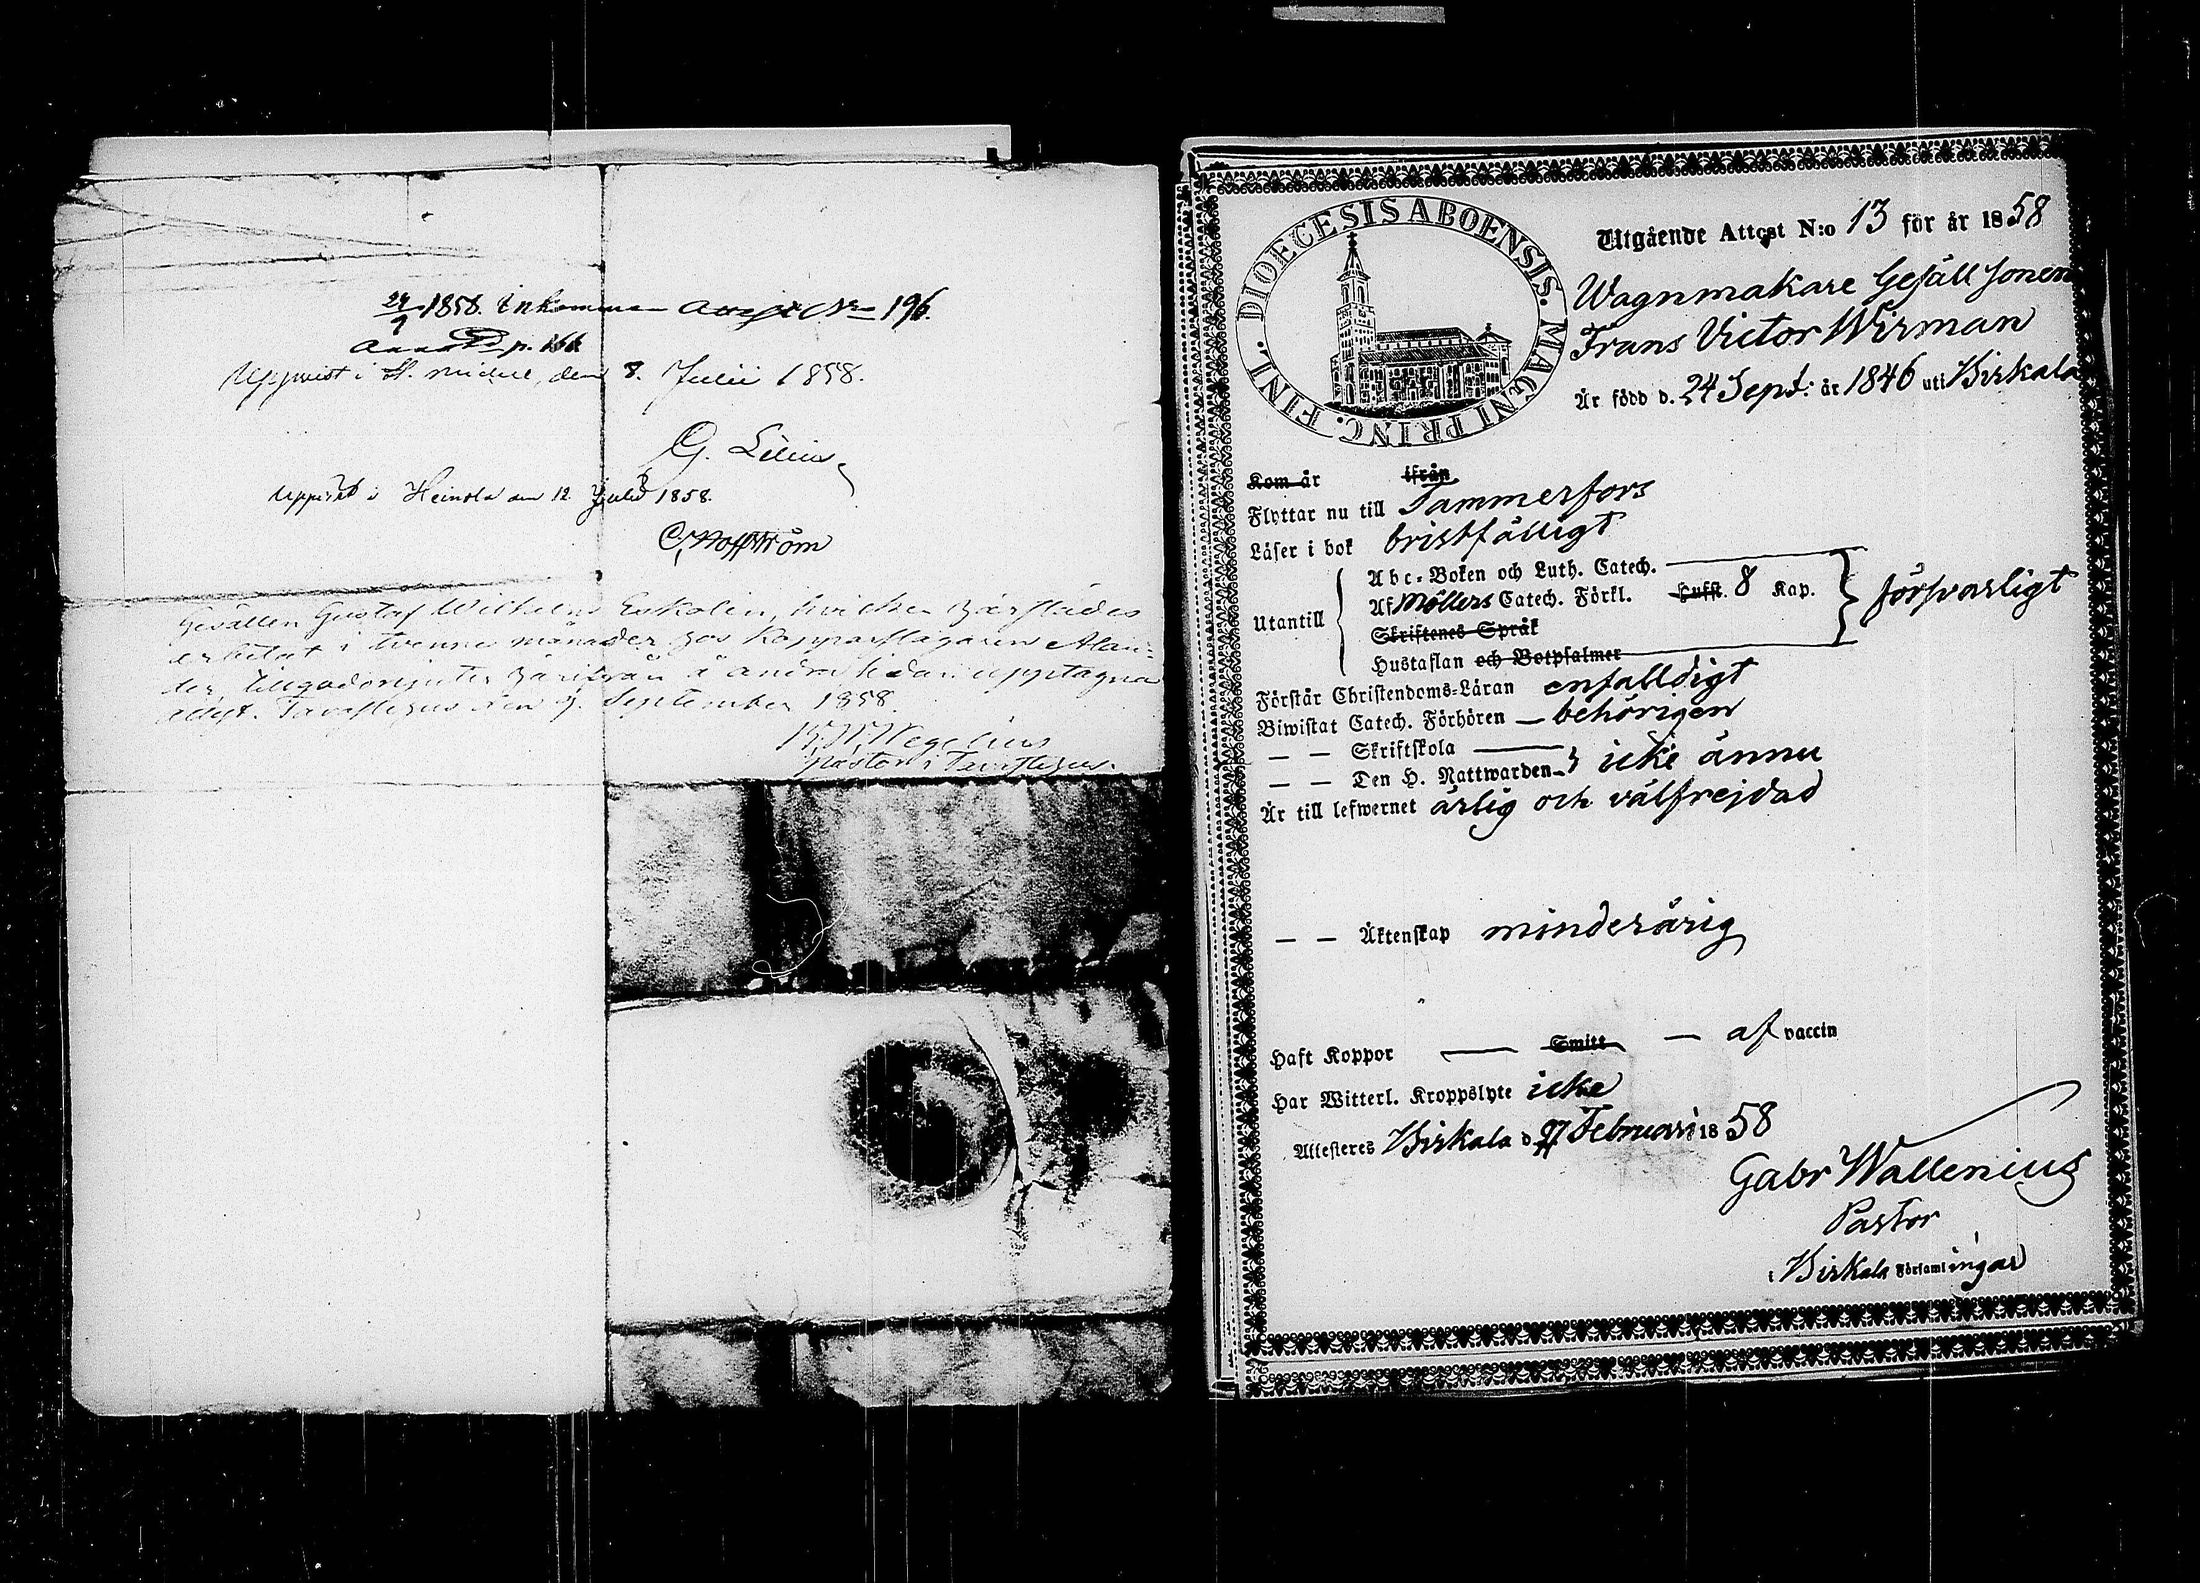 24/9 1858. Inkommen Attest No 196.
p. 166
Uppvist i St. Michel, den 8. Julii 1858.
G. Lilius
Uppvist i Heinola den 12 Julii 1858.
Gesällen Gustaf Wilhelm Eskolin, hvilken härstädes
arbetat i tvenne månader hos Kopparslagaren Alan-
der, tillgodonjuter härifrån å andra sidan upptagna
attest. Tavastehus den 9. September 1858.
Pastor i Tavastehus.
DIOECESIS ABOENSIS. MAGNI PRINC. FINL.
Utgående Attest N:o 13 för år 1858
Wagnmakare Gesäll sonen
Frans Victor Wirman
Är född d. 24 Sept: år 1846 uti Birkala
Kom år ifrån
Flyttar nu till Tammerfors
Läser i bok bristfälligt
Utantill
Abc-Boken och Luth. Catech.
Af Möllers Catech. Förkl. Hufst. 8 Kap. försvarligt
Skriftenes Språk
Hustaflan och Botpsalmer
Förstår Christendoms-Läran enfalldigt
Biwistat Catech. Förhören — behörigen
— — Skriftskola — icke ännu
— — Den H. Nattwarden
Är till lefwernet ärlig och välfrejdad
— — Äktenskap minderårig
Haft Koppor — Smitt — af vaccin
Har Witterl. Kroppslyte icke
Attesteres Birkala d 27 Februari 1858
Gabr Wallenius
Pastor
i Birkala Församlingar